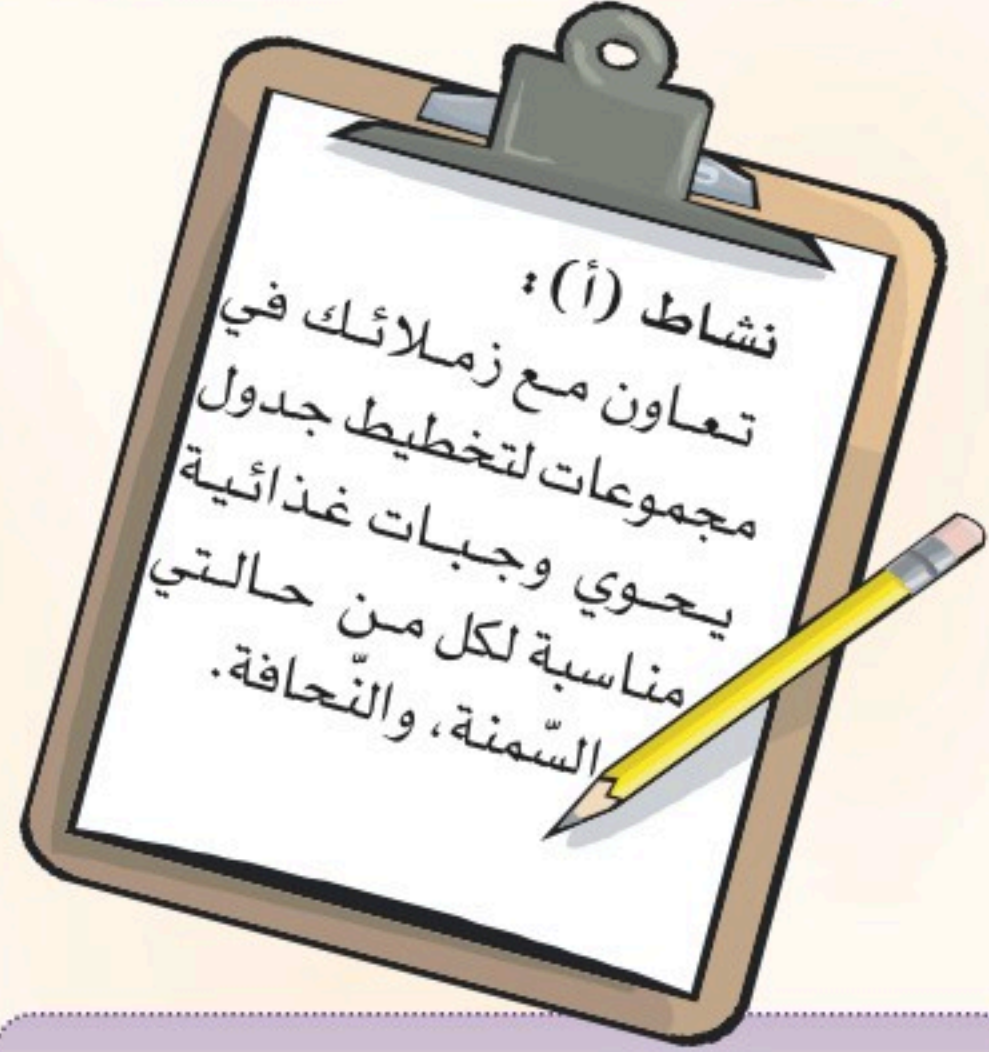 نشاط (أ) :
تعاون مع زملائك في
مجموعات لتخطيط جدول
يحوي وجبات غذائية
مناسبة لكل من حالتي
السّمنة، والنّحافة.